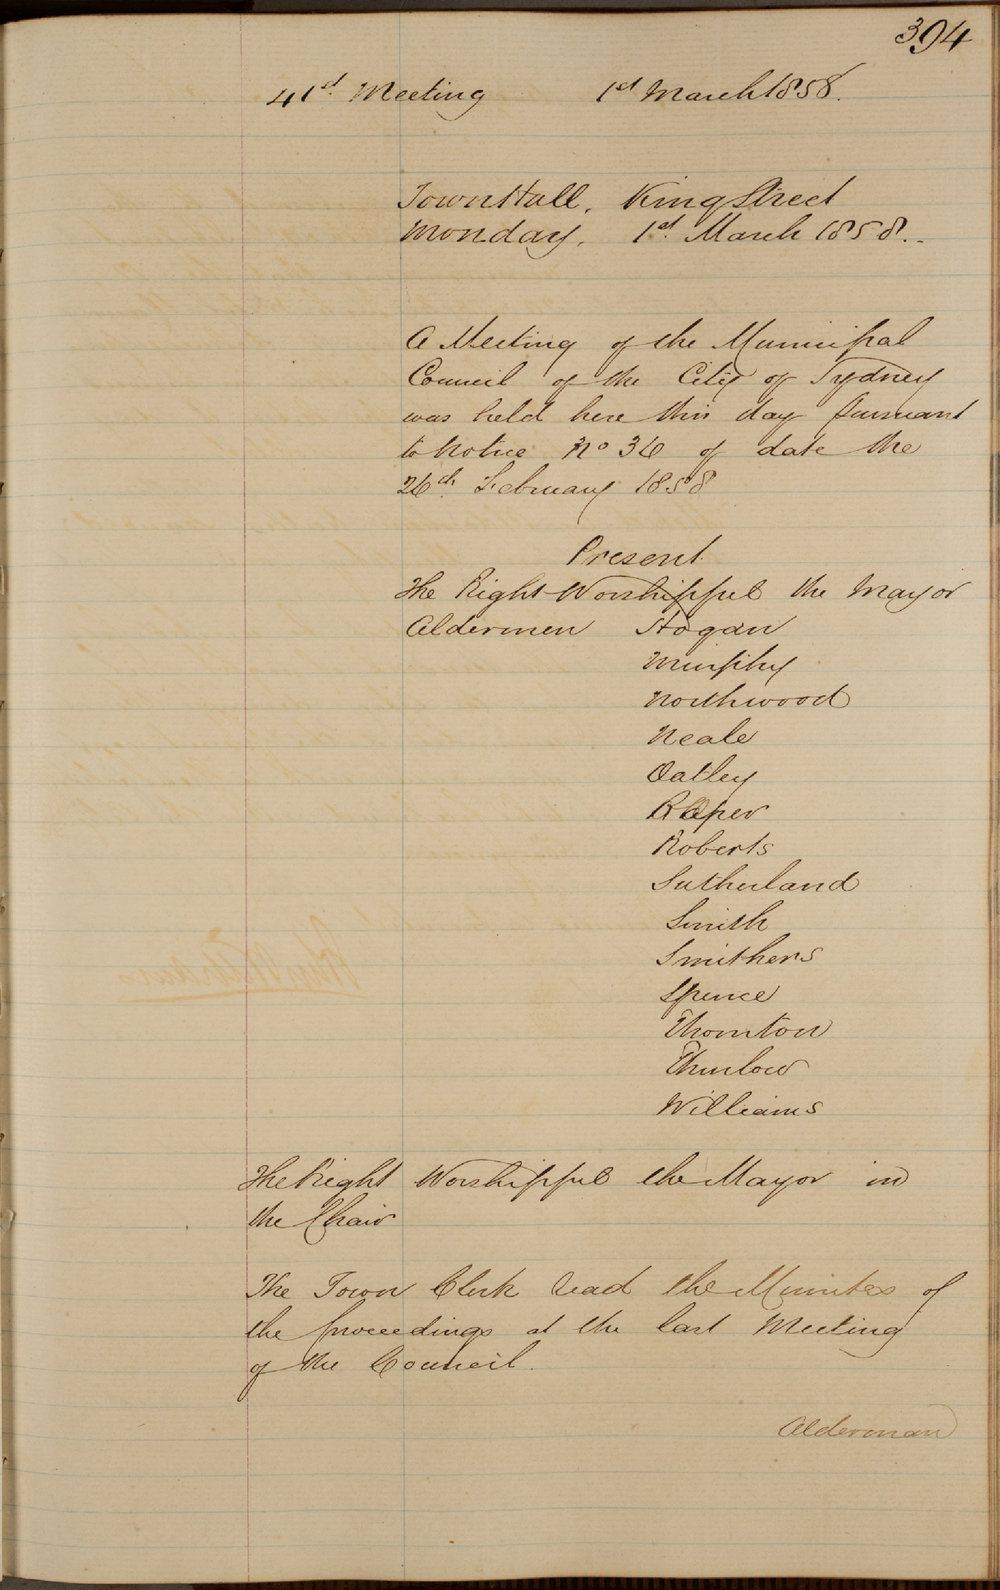 394
41st Meeting 1st March 1858.
Town Hall, King Street
Monday, 1st March 1858.
A Meeting of the Municipal
Council of the City of Sydney
was held here this day pursuant
to Notice No 36 of date the
26th February 1858
Present
The Right Worshipful the Mayor
Aldermen Hogan
Murphy
Northwood
Neale
Oatley
Raper
Roberts
Sutherland
Smith
Smithers
Spence
Thornton
Thurlow
Williams
The Right Worshipful the Mayor in
the Chair
The Town Clerk read the Minutes of
the proceedings at the last Meeting
of the Council.
Alderman